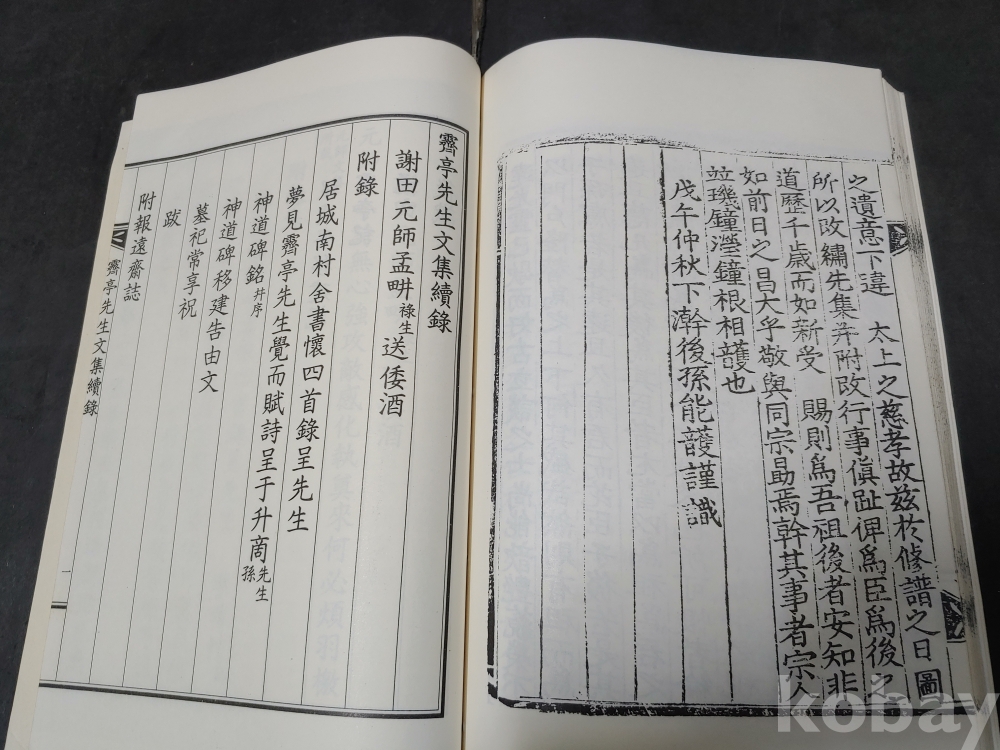 之遺意下違 太上之慈孝故玆於修譜之日圖
所以改繡先集幷附改行事傎趾俾爲臣爲後之
道歷千歲而如新受 賜則爲吾祖後者安知非
如前日之昌大乎敬與同宗勗焉幹其事者宗人
竝璣鐘瀅鐘根相頀也
戊午仲秋下澣後孫能頀謹識
霽亭先生文集續錄
謝田元師孟畊祿生送倭酒
附錄
居城南村舍書懷四首錄呈先生
夢見霽亭先生覺而賦詩呈于升商先生孫
神道碑銘幷序
神道碑移建告由文
墓祀常享祝
跋
附報遠齋誌
霽亭先生文集續錄
kobay